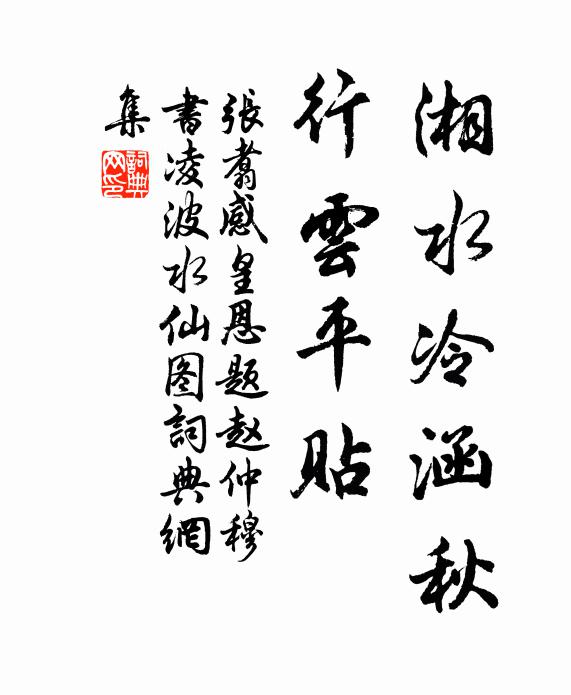 湘水冷涵秋
行雲平貼
張翥感皇恩題赵仲穆
書凌波水仙图詞典網
集
詞典
网印